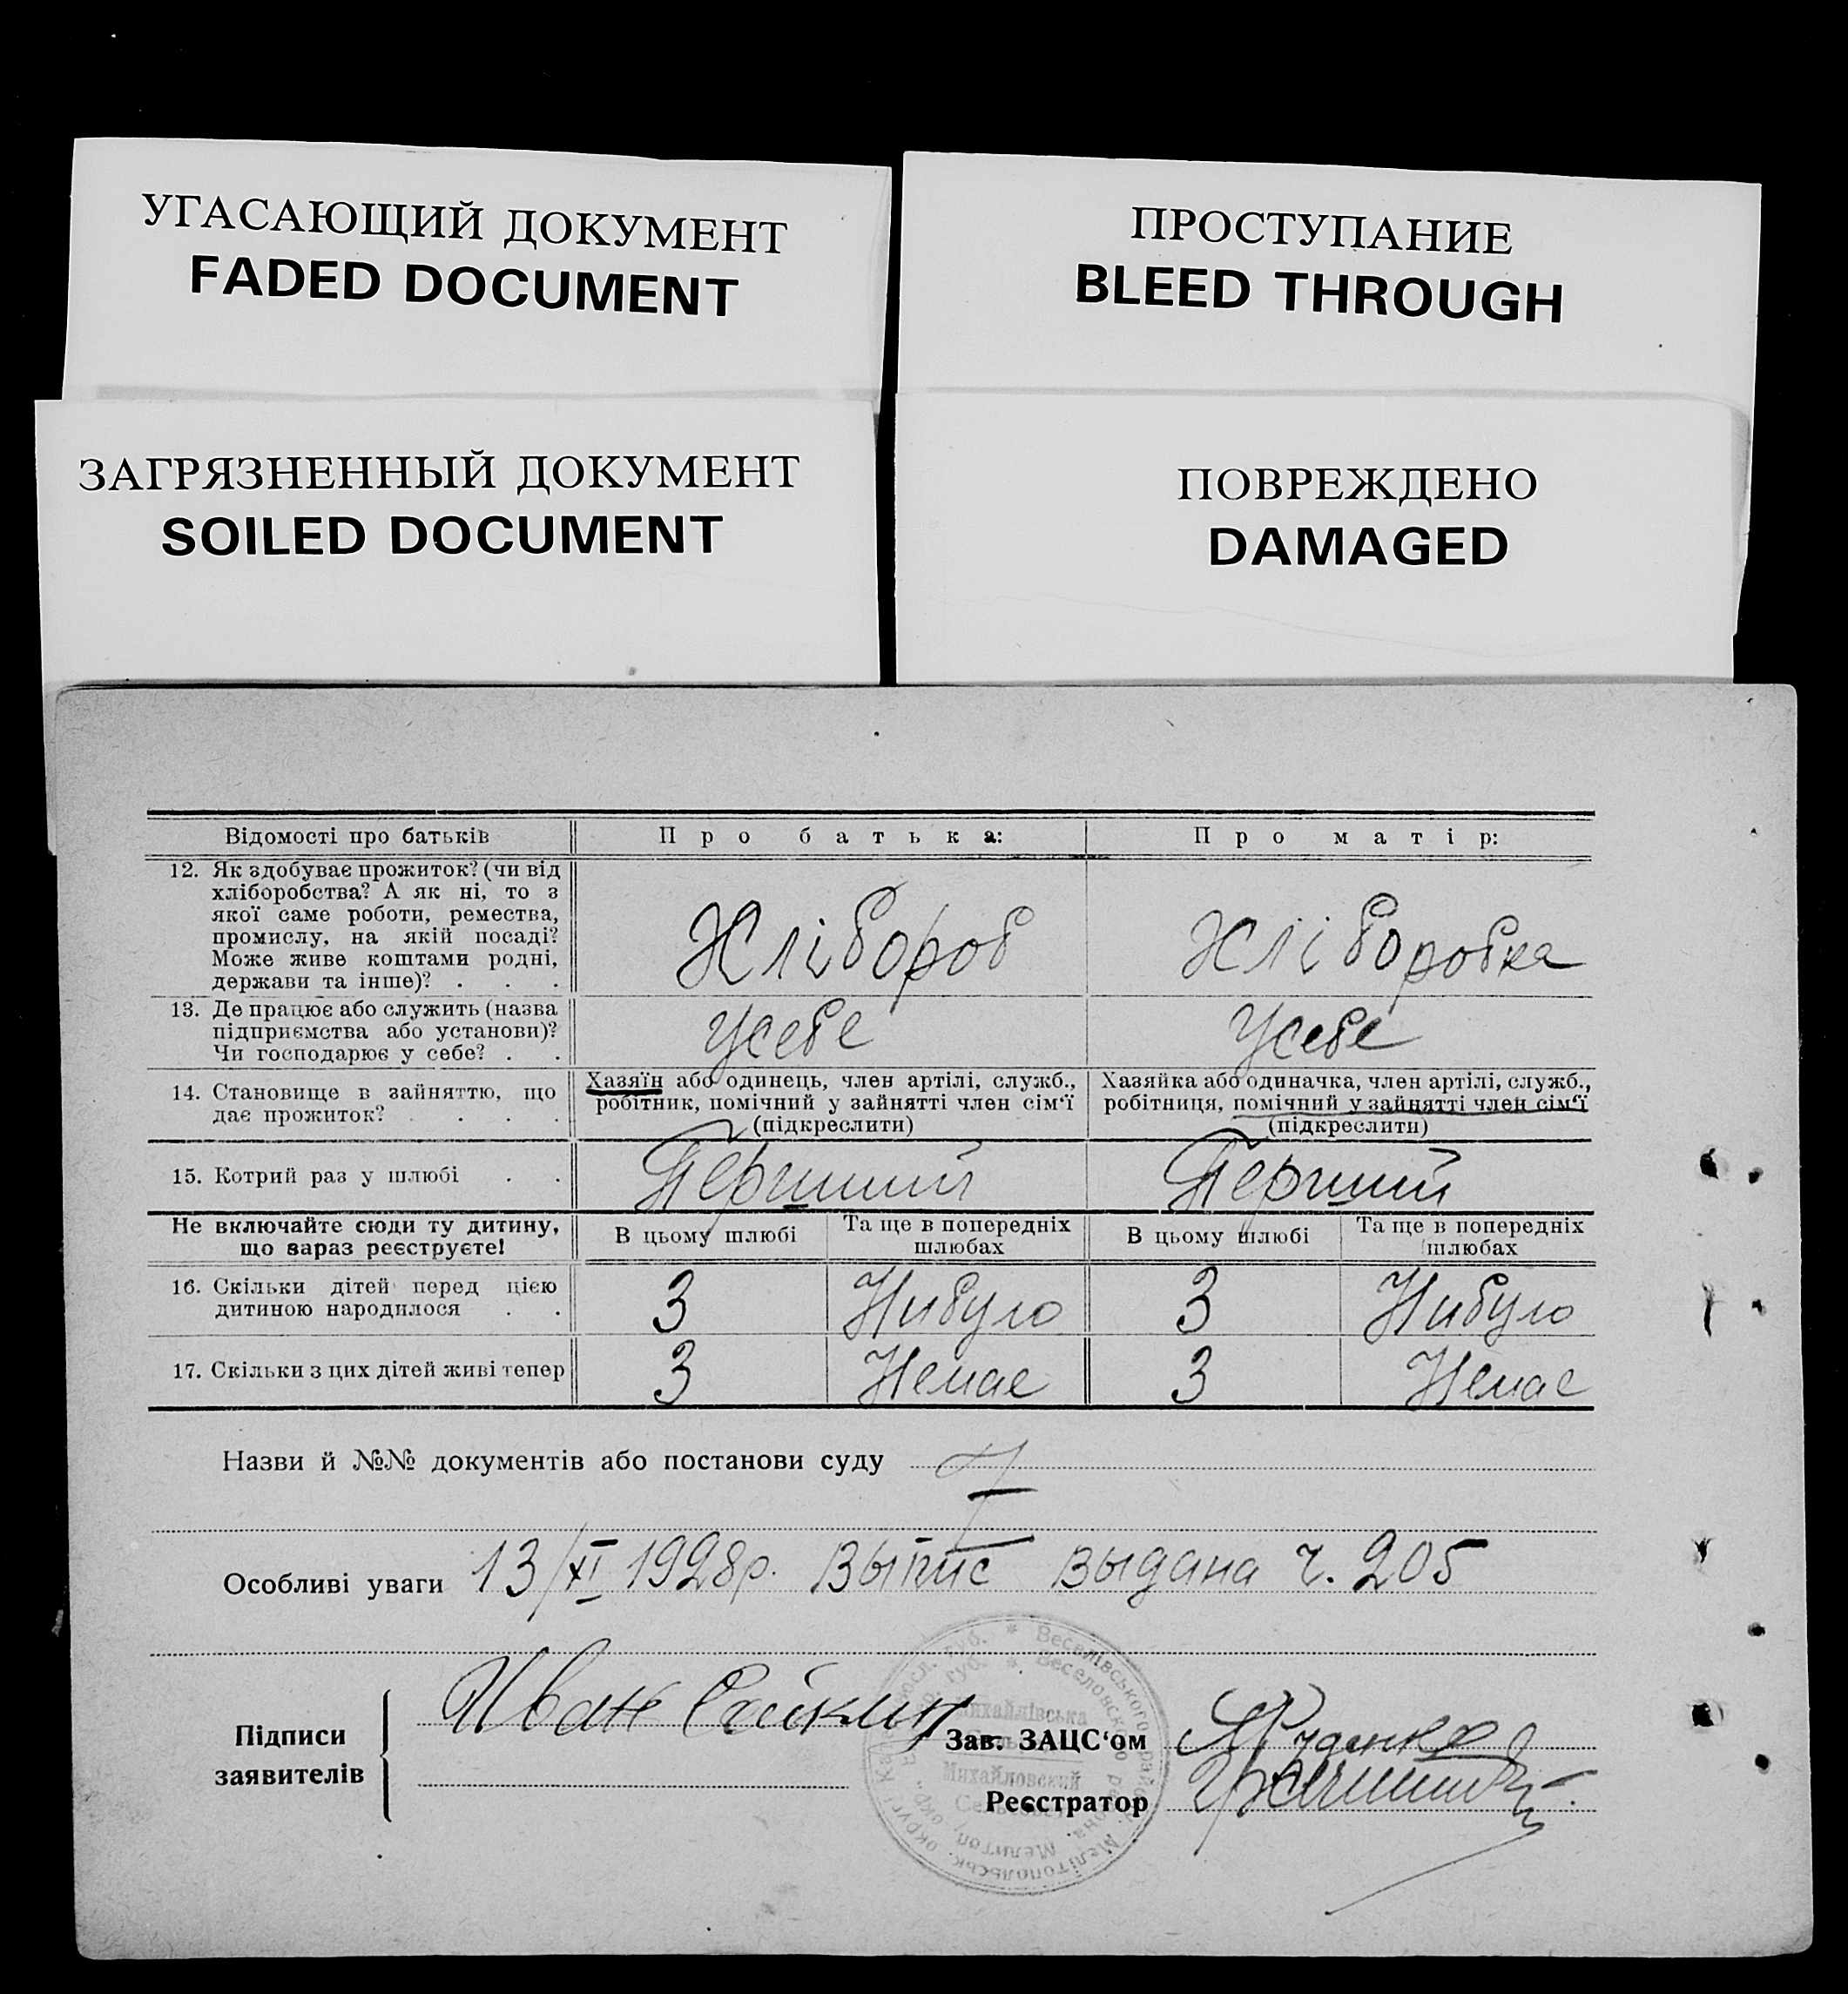 УГАСАЮЩИЙ ДОКУМЕНТ
FADED DOCUMENT
ПРОСТУПАНИЕ
BLEED THROUGH
ЗАГРЯЗНЕННЫЙ ДОКУМЕНТ
SOILED DOCUMENT
ПОВРЕЖДЕНО
DAMAGED
Відомості про батьків Про батька: Про матір:
12. Як здобуває прожиток? (чи від
хліборобства? А як ні, то з
якої саме роботи, ремества,
промислу, на якій посаді?
Може живе коштами родні,
держави та інше)? . . .
Хлібороб Хліборобка
13. Де працює або служить (назва
підприємства або установи)?
Чи господарює у себе? . .
Усебе Усебе
14. Становище в зайняттю, що
дає прожиток? . . . .
Хазяїн або одинець, член артілі, служб.,
робітник, помічний у зайнятті член сім‘ї
(підкреслити)
Хазяйка або одиначка, член артілі, служб.,
робітниця, помічний у зайнятті член сім‘ї
(підкреслити)
15. Котрий раз у шлюбі . . Перший Перший
Не включайте сюди ту дитину,
що зараз реєструєте!
В цьому шлюбі
Та ще в попередніх
шлюбах
В цьому шлюбі
Та ще в попередніх
шлюбах
16. Скільки дітей перед цією
дитиною народилося . .
3 Нибуло 3 Нибуло
17. Скільки з цих дітей живі тепер 3 Немае 3 Немае
Назви й №№ документів або постанови суду
Особливі уваги 13/XI 1928р. Выпис выдана ч. 205
Підписи
заявителів
Иван
Зав. ЗАЦС‘ом Руденко
Реєстратор
Веселівського району Мелітопольськ. округи
Веселовского района, Мелитоп. окр.
Михайлівська
Михайловский